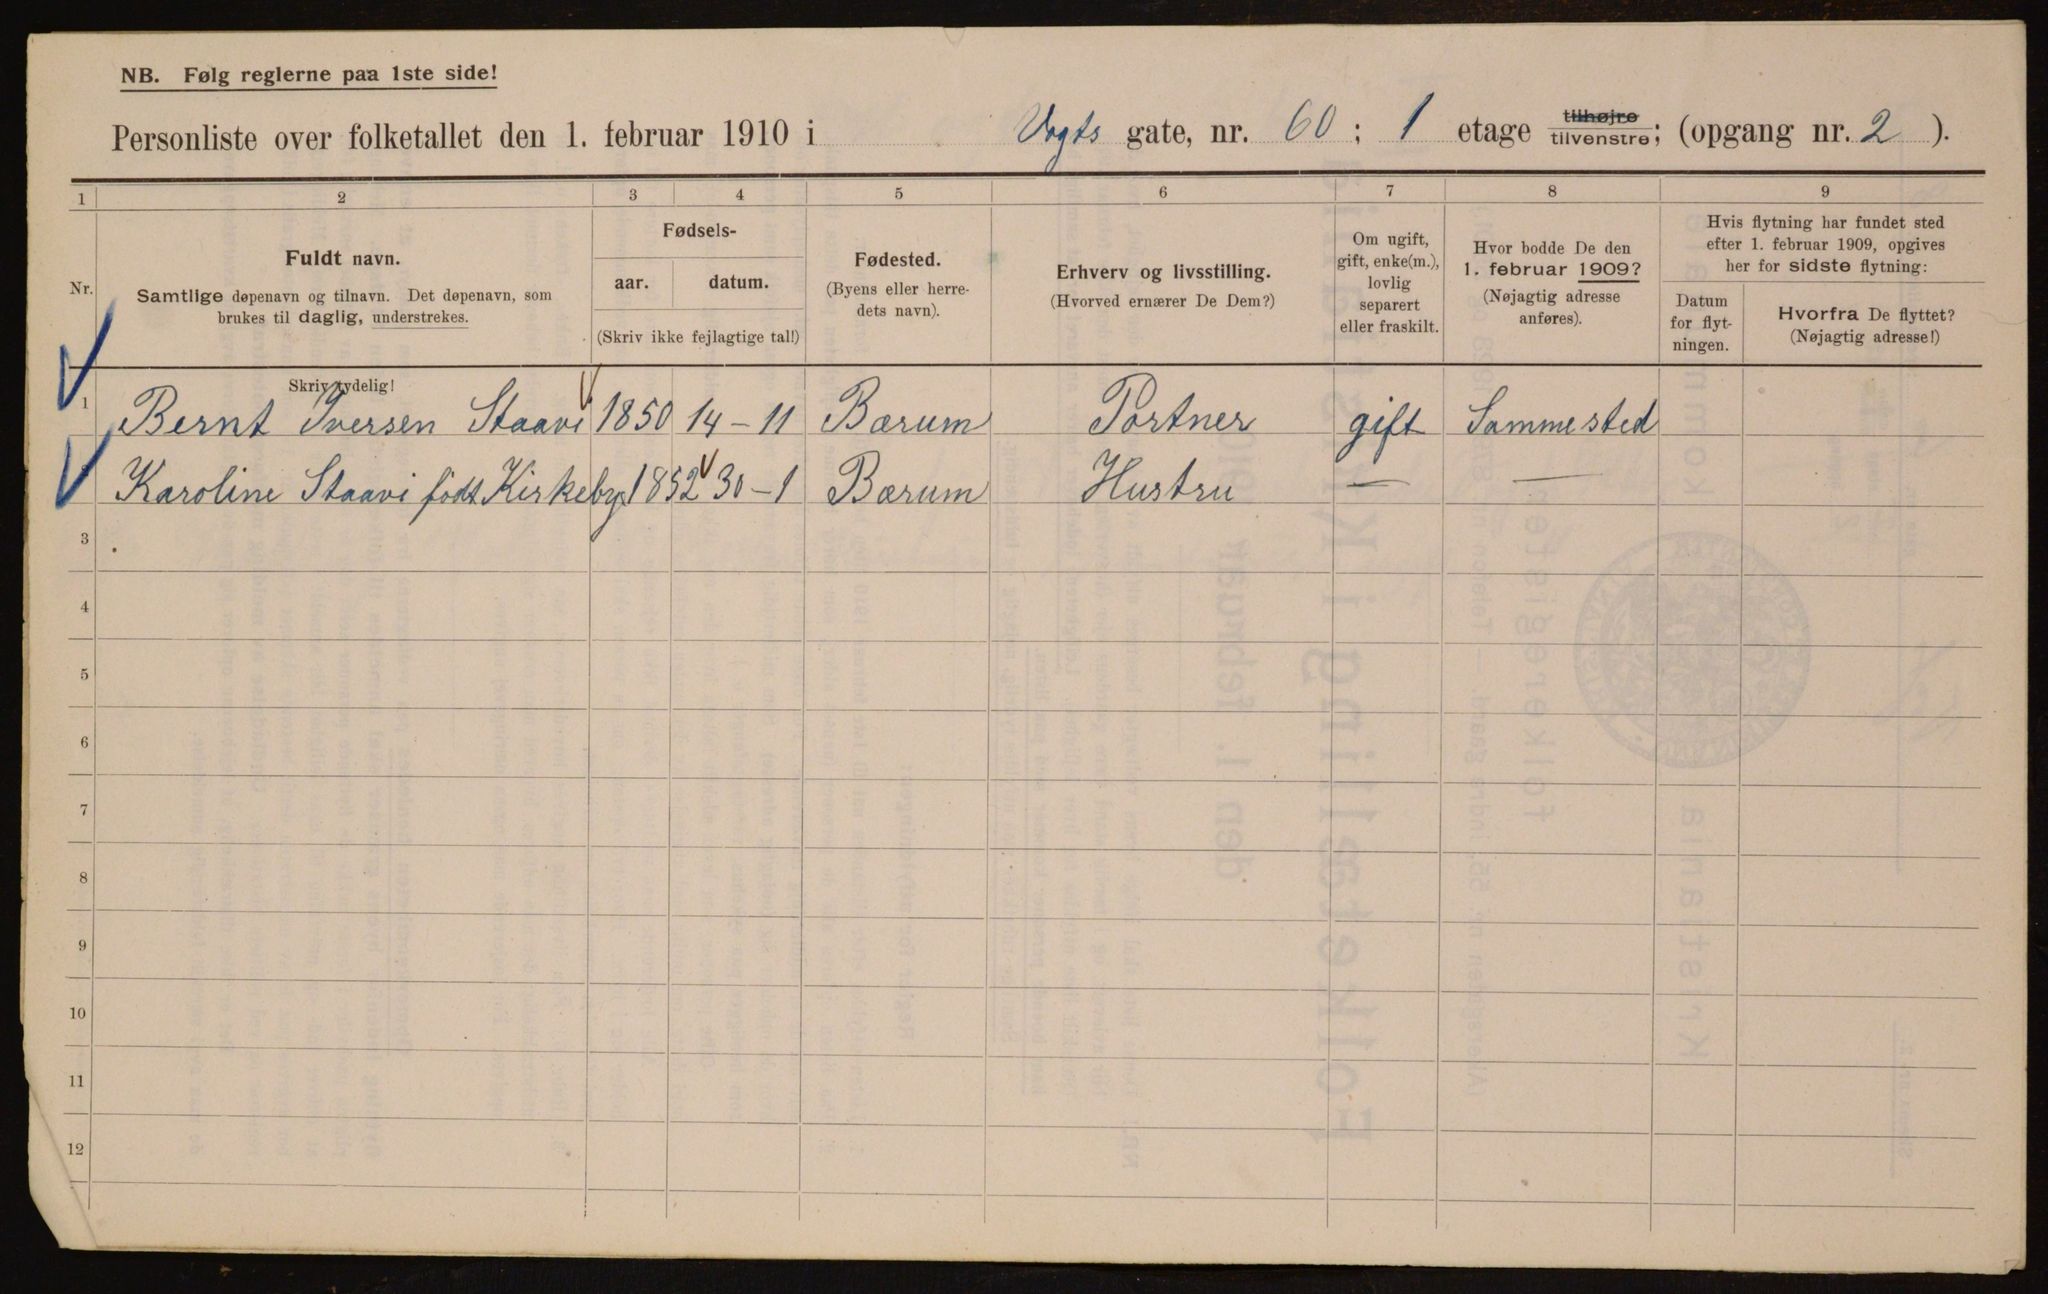 NB. Følg reglerne paa 1ste side!
Personliste over folketallet den 1. februar 1910 i Vogts gate, nr. 60 ; 1 etage tilhøjre tilvenstre; (opgang nr. 2 ).
1 2 3 4 5 6 7 8 9
Nr.
Fuldt navn.
Samtlige døpenavn og tilnavn. Det døpenavn, som
brukes til daglig, understrekes.
Skriv tydelig!
Fødsels-
aar. datum.
(Skriv ikke fejlagtige tal!)
Fødested.
(Byens eller herre-
dets navn).
Erhverv og livsstilling.
(Hvorved ernærer De Dem?)
Om ugift,
gift, enke(m.),
lovlig
separert
eller fraskilt.
Hvor bodde De den
1. februar 1909?
(Nøjagtig adresse
anføres).
Hvis flytning har fundet sted
efter 1. februar 1909, opgives
her for sidste flytning:
Datum
for flyt-
ningen.
Hvorfra De flyttet?
(Nøjagtig adresse!)
1 Bernt Iversen Staavi 1850 14 – 11 Bærum Portner gift Sammested
Karoline Staavi født Kirkeby 1852 30 – 1 Bærum Hustru — —
3
4
5
6
7
8
9
10
11
12